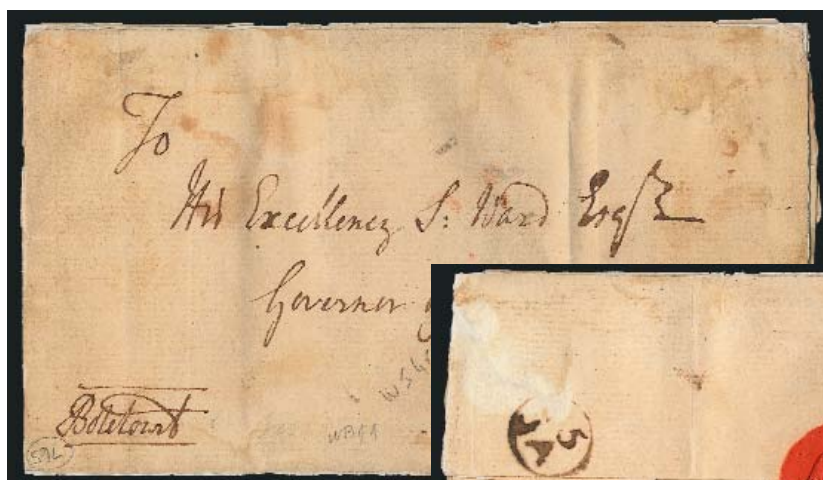 To
His Excellency S: Ward Esqr
Governor
Botetourt
592
WB91
5
IA